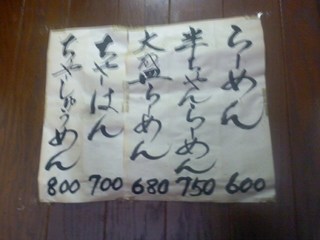 らーめん 600
半ちゃんらーめん 750
大盛らーめん 680
ちゃーはん 700
ちゃーしゅうめん 800